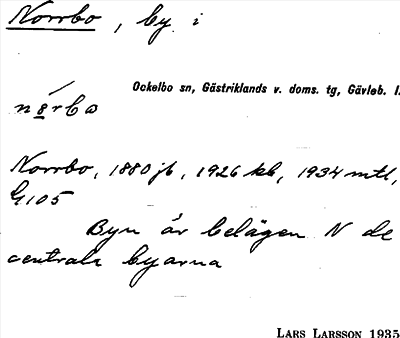 Norrbo, by i
Ockelbo sn, Gästriklands v. doms. tg, Gävleb. l.
Norrbo, 1880 jb, 1926 kb, 1934 mtl,
G105
Byn är belägen N de
centrala byarna
LARS LARSSON 1935